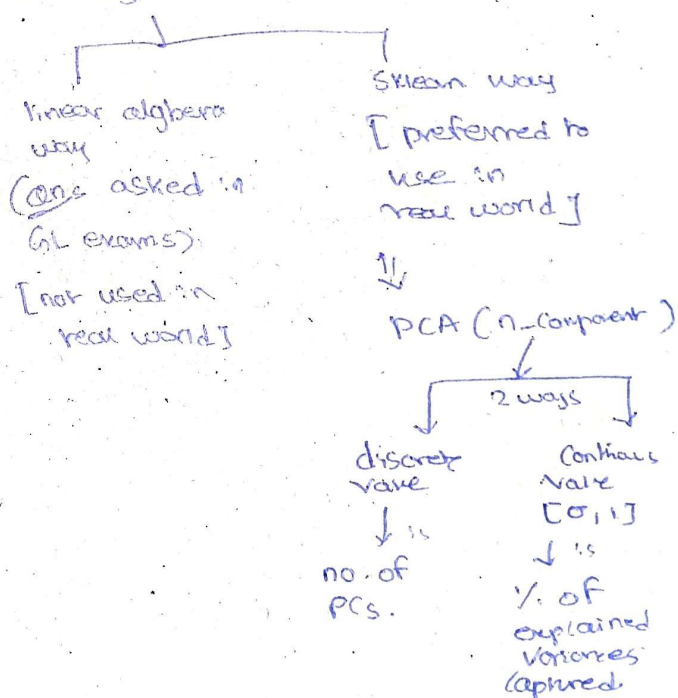 linear algbera
way
(Qns asked in
GL exams)
[not used in
real world]
Sklean way
[preferred to
use in
real world]
PCA (n_component)
2 ways
discrete
value
is
no. of
PCs.
Continous
Value
[0,1]
is
% of
explained
Variances
Captured.